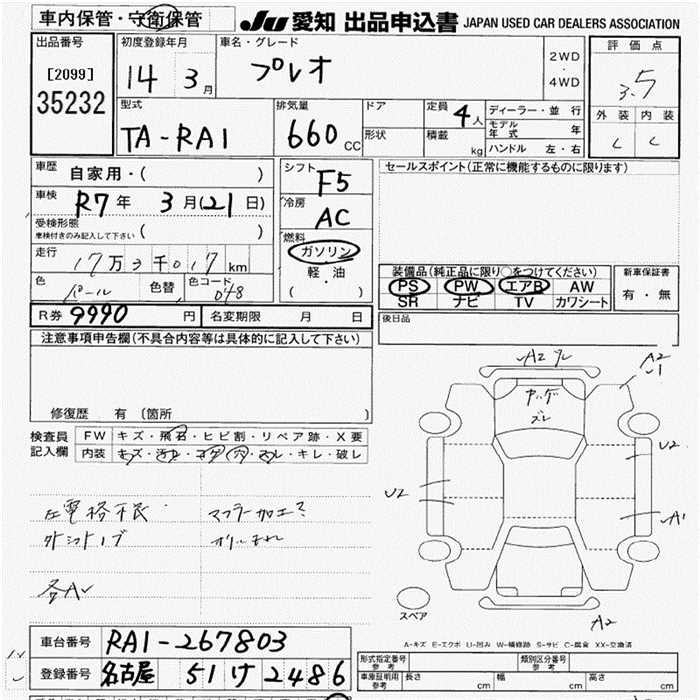 車内保管・守衛保管
JU 愛知 出品申込書 JAPAN USED CAR DEALERS ASSOCIATION
出品番号
[2099]
35232
初度登録年月
14 3月
車名・グレード
プレオ
2WD
・
4WD
評価点
3.5
外装 内装
C C
型式
TA-RA1
排気量
660 CC
ドア
形状
定員 4人
積載 kg
ディーラー・並行
モデル年式 年
ハンドル 左・右
車歴 自家用・( )
車検 R7年 3月(21日)
受検形態
車検付きのみ記入して下さい ( )
走行 17万3千017km
色 パール 色替 色コード 048
シフト F5
冷房 AC
燃料
ガソリン
軽・油
( )
セールスポイント(正常に機能するものに限ります)
装備品(純正品に限り○をつけてください)
PS PW エアB AW
SR ナビ TV カワシート
新車保証書
有・無
後日品
R券 9990 円 名変期限 月 日
注意事項申告欄(不具合内容等は具体的に記入して下さい)
修復歴 有 (箇所 )
検査員記入欄
FW キズ・飛石・ヒビ割・リペア跡・X要
内装 キズ・汚れ・コゲ・穴・スレ・キレ・破レ
マフラー加工?
外シフトノブ オイルもれ
各A
A2
A2
U2
U2
A1
A2
スペア
A-キズ E-エクボ U-凹み W-補修跡 S-サビ C-腐食 XX-交換済
車台番号 RA1-267803
登録番号 名古屋 51 け 2486
形式指定番号 参考 類別区分番号 参考
車庫証明用 参考 長さ cm 幅 cm 高さ cm